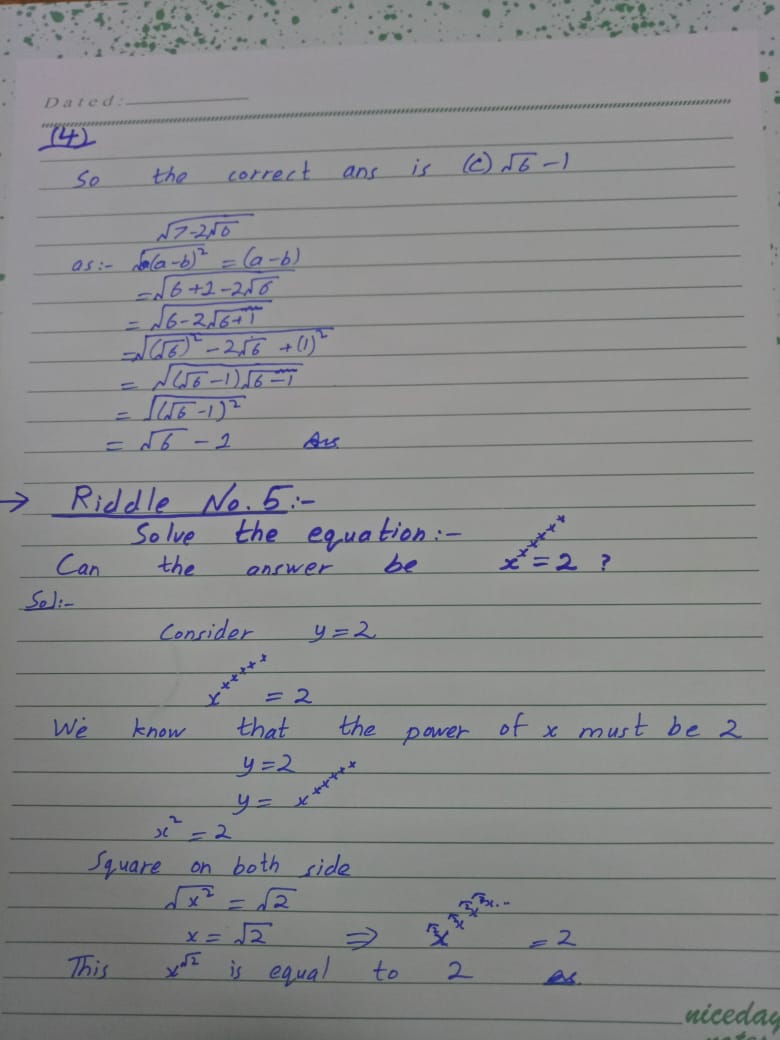 Dated:
(4)
So the correct ans is (c) √6 - 1
√7-2√6
as:- √(a-b)² = (a-b)
= √6+1-2√6
= √6-2√6+1
= √(√6)² - 2√6 + (1)²
= √(√6-1)√6-1
= √(√6-1)²
= √6 - 1 Ans
→ Riddle No. 5:-
Solve the equation:-
Can the answer be x^x^x^x^x^x^x = 2 ?
Sol:-
Consider y = 2
x^x^x^x^x^x = 2
We know that the power of x must be 2
y = 2
y = x^x^x^x^x^x
x² = 2
Square on both side
√x² = √2
x = √2 ⇒ = 2
This x^√2 is equal to 2
niceday
notes